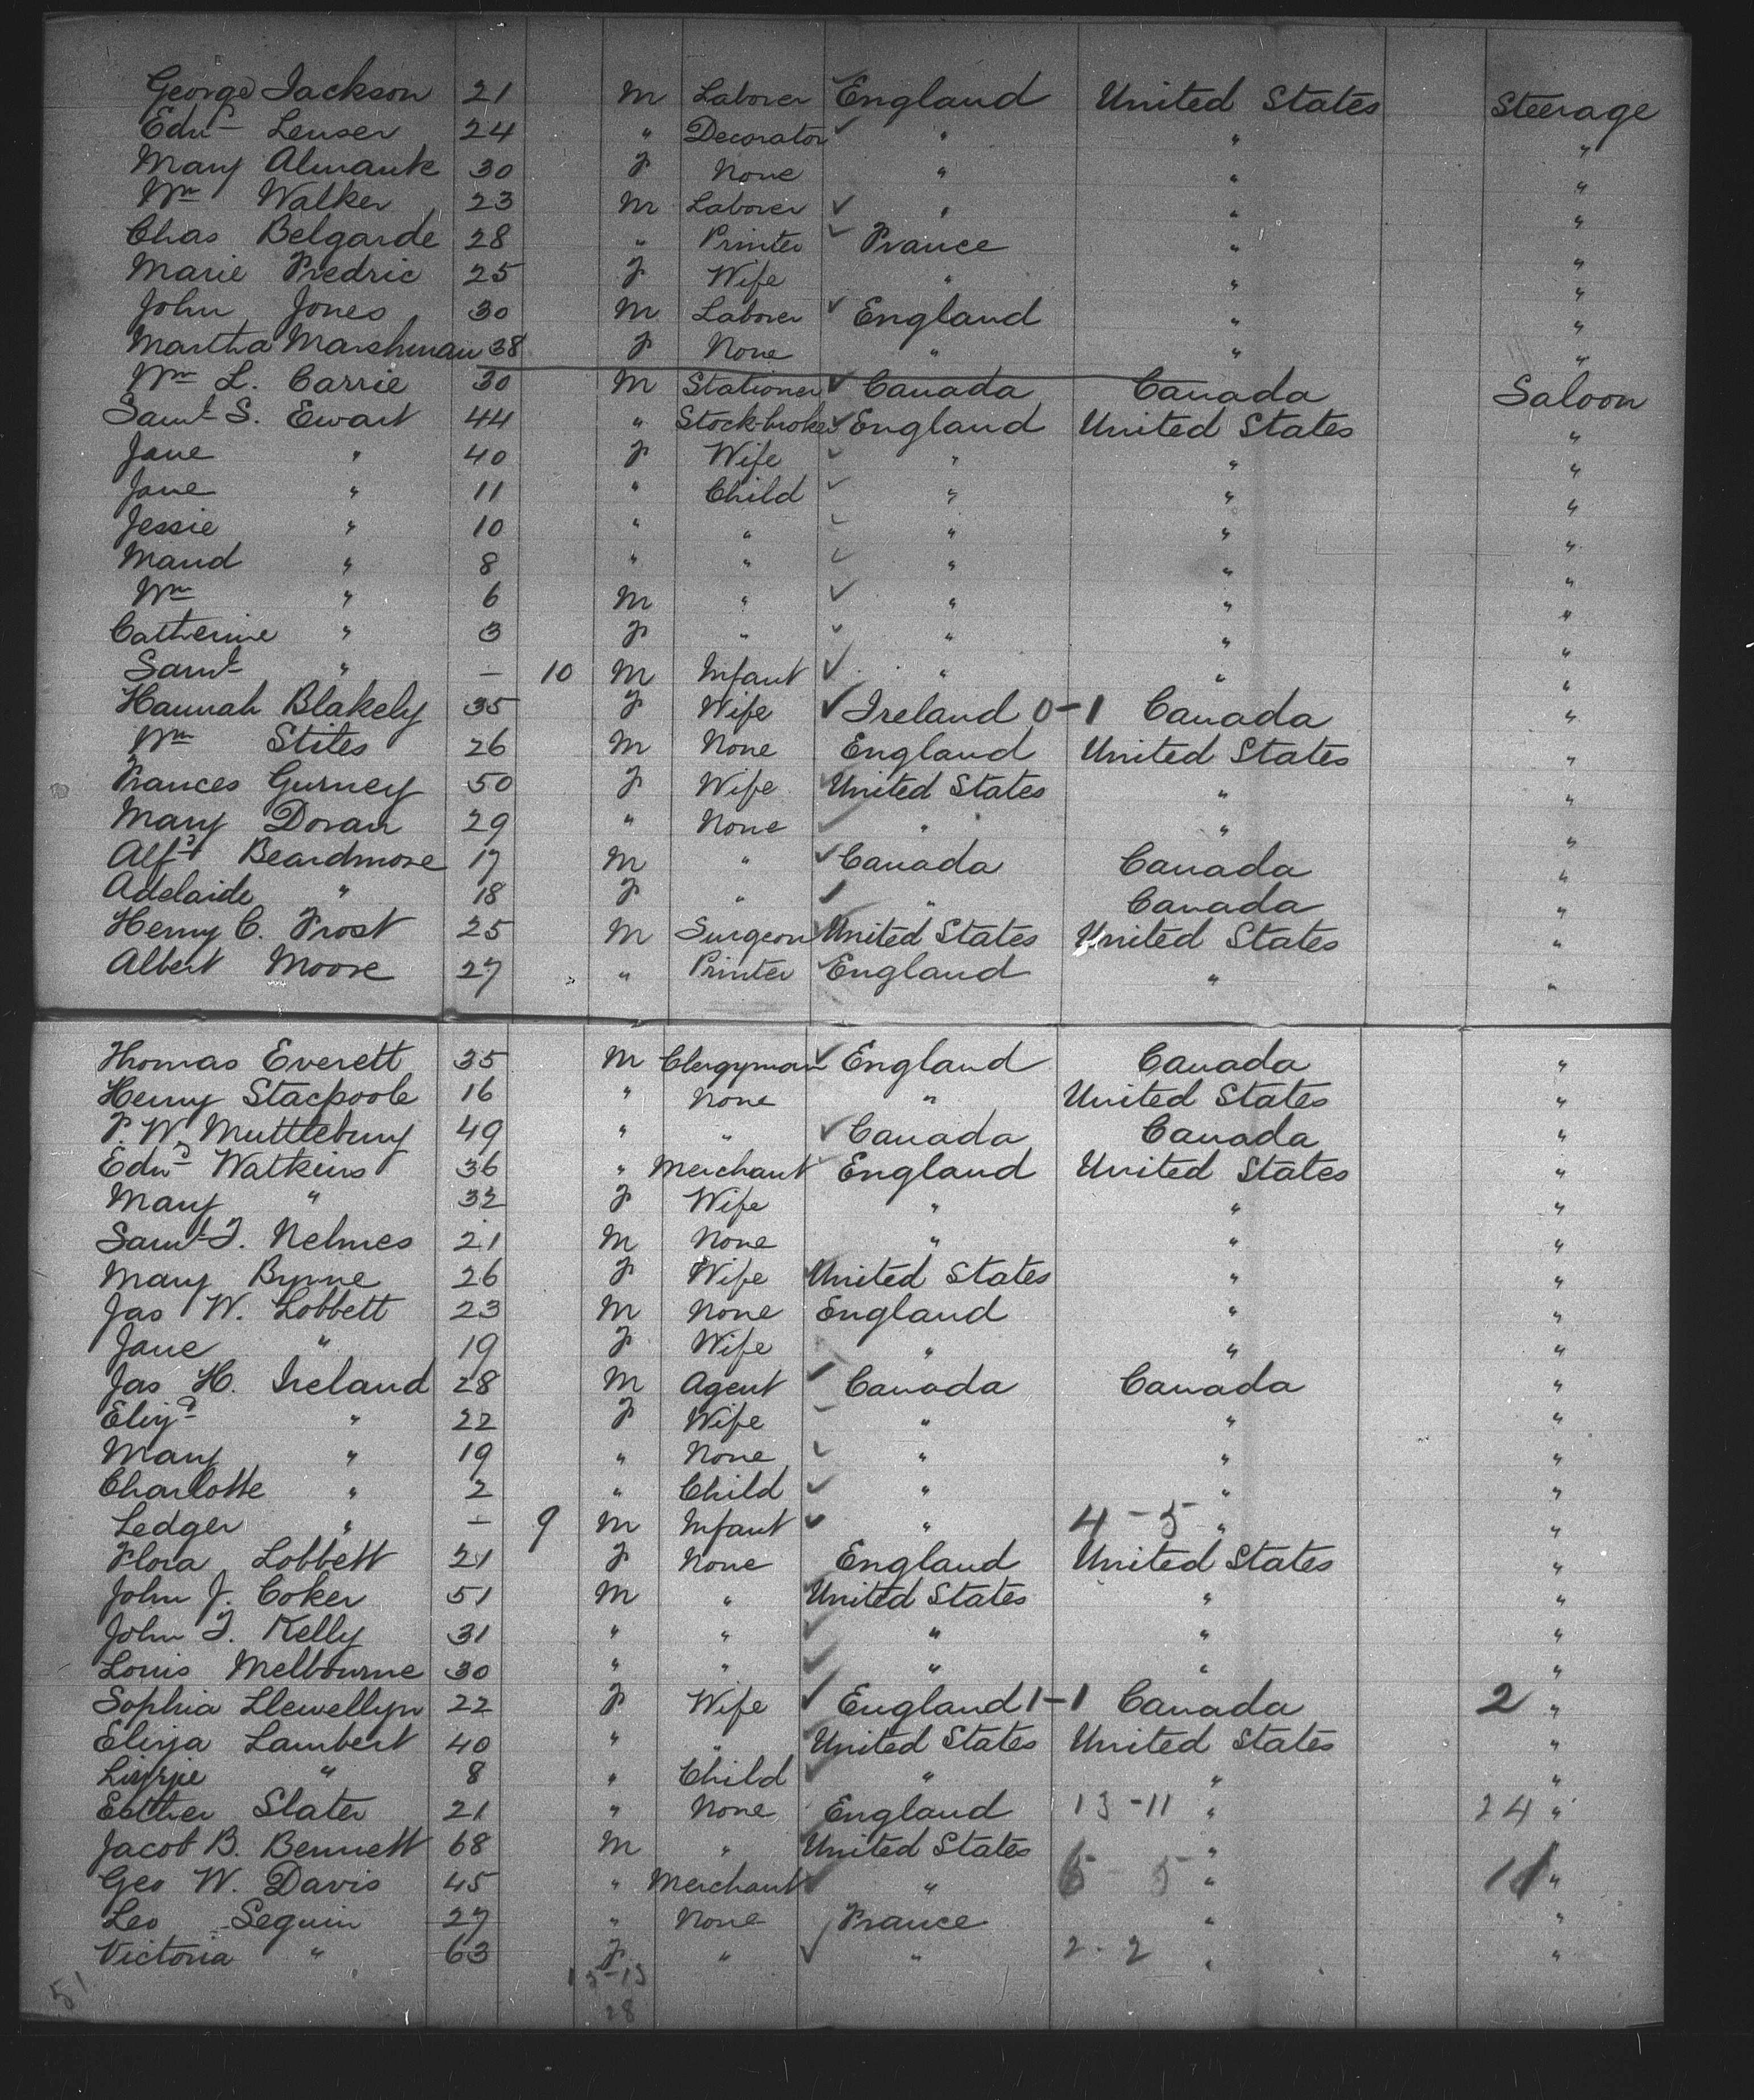 George Jackson 21 M Laborer England United States Steerage
Edwd Lenser 24 " Decorator " " "
Mary Almauk 30 F None " " "
Wm Walker 23 M Laborer " " "
Chas Belgarde 28 " Printer France " "
Marie Fredric 25 F Wife " " "
John Jones 30 M Laborer England " "
Martha Marshman 38 F None " " "
Wm L. Carrie 30 M Stationer Canada Canada Saloon
Saml S. Ewart 44 " Stock-broker England United States "
Jane " 40 F Wife " " "
Jane " 11 " Child " " "
Jessie " 10 " " " " "
Maud " 8 " " " " "
Wm " 6 M " " " "
Catherine " 3 F " " " "
Saml " — 10 M Infant " " "
Hannah Blakely 35 F Wife Ireland 0-1 Canada "
Wm Stiles 26 M None England United States "
Frances Gurney 50 F Wife United States " "
Mary Doran 29 " None " " "
Alfd Beardmore 17 M " Canada Canada "
Adelaide " 18 F " " Canada "
Henry C. Frost 25 M Surgeon United States United States "
Albert Moore 27 " Printer England " "
Thomas Everett 35 M Clergyman England Canada "
Henry Stacpoole 16 " None " United States "
F. W. Muttlebury 49 " " Canada Canada "
Edwd Watkins 36 " Merchant England United States "
Mary " 32 F Wife " " "
Saml T. Nelmes 21 M None " " "
Mary Byrne 26 F Wife United States " "
Jas W. Lobbett 23 M None England " "
Jane " 19 F Wife " " "
Jas H. Ireland 28 M Agent Canada Canada "
Eliza " 22 F Wife " " "
Mary " 19 " None " " "
Charlotte " 2 " Child " " "
Ledger " — 9 M Infant " 4-5 " "
Flora Lobbett 21 F None England United States "
John J. Coker 51 M " United States " "
John T. Kelly 31 " " " " "
Louis Melbourne 30 " " " " "
Sophia Llewellyn 22 F Wife England 1-1 Canada 2 "
Eliza Lambert 40 " " United States United States "
Lizzie " 8 " Child " " "
Esther Slater 21 " None England 13-11 " 24 "
Jacob B. Bennett 68 M " United States " "
Geo W. Davis 45 " Merchant " 5 " 11 "
Leo Seguin 27 " None France " "
Victoria " 63 F " " 2-2 " "
51 13-13
28